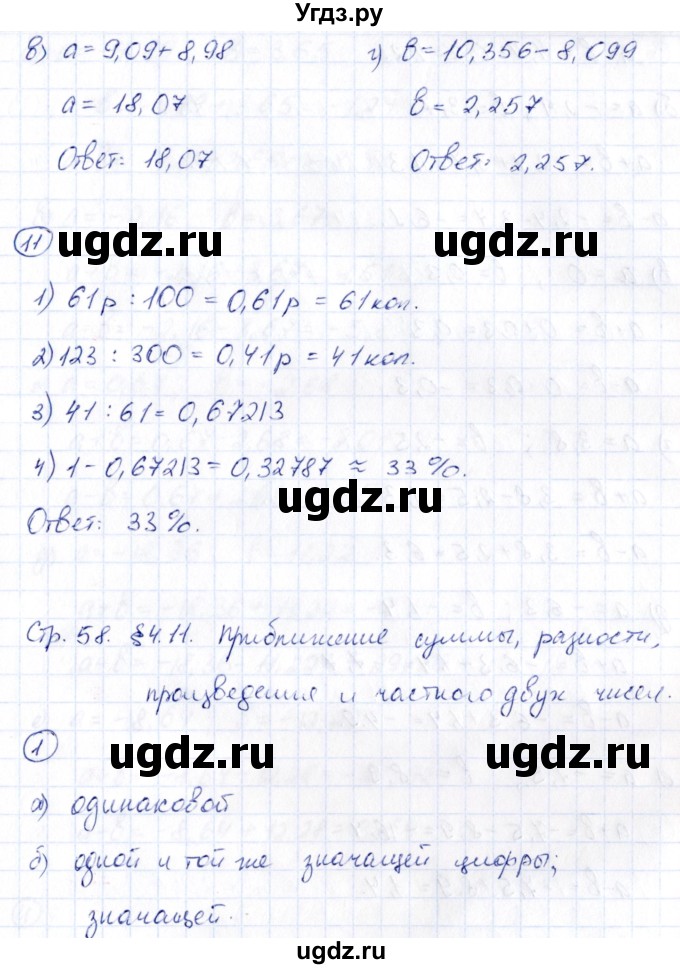 Угдз.ру
в) a = 9,09 + 8,98
a = 18,07
Ответ: 18,07
г) b = 10,356 - 8,099
b = 2,257
Ответ: 2,257.
11
ugdz.ru
ugdz.ru
1) 61р : 100 = 0,61р = 61коп.
2) 123 : 300 = 0,41р = 41коп.
3) 41 : 61 = 0,67213
4) 1 - 0,67213 = 0,32787 ≈ 33%.
ugdz.ru
Ответ: 33%.
Стр. 58. §4.11. Приближение суммы, разности,
произведения и частного двух чисел.
1
ugdz.ru
ugdz.ru
а) одинаковой
б) одной и той же значащей цифры;
значащей.
ugdz.ru